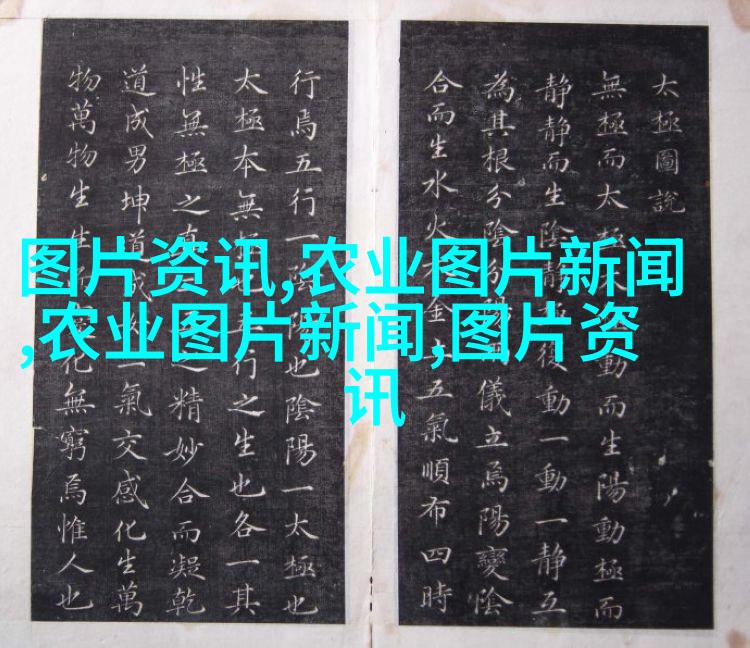 太極圖說
無極而太極動而生陽動極而
静静而生陰静後動一動一静互
為其根分陰分陽儀立焉陽變陰
合而生水火金五氣順布四時
行焉五行一陰陽也陰陽一太極也
太極本無極行之生也各一其
性無極之真之精妙合而凝乾
道成男坤道成氣交感化生萬
物萬物生生化無窮焉惟人也
图片资讯,农业图片新闻
,农业图片新闻,图片资
讯